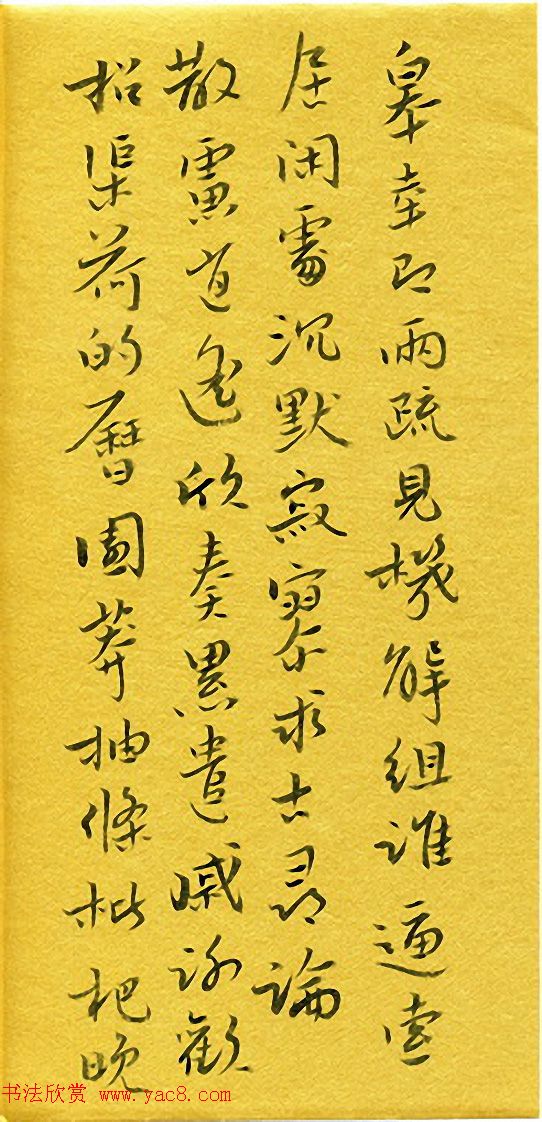 皋幸即兩疏見機解組誰逼索
居閑處沉默寂寥求古尋論
散慮逍遙欣奏累遣慼謝歡
招渠荷的曆園莽抽條枇杷晚
书法欣赏 www.yac8.com